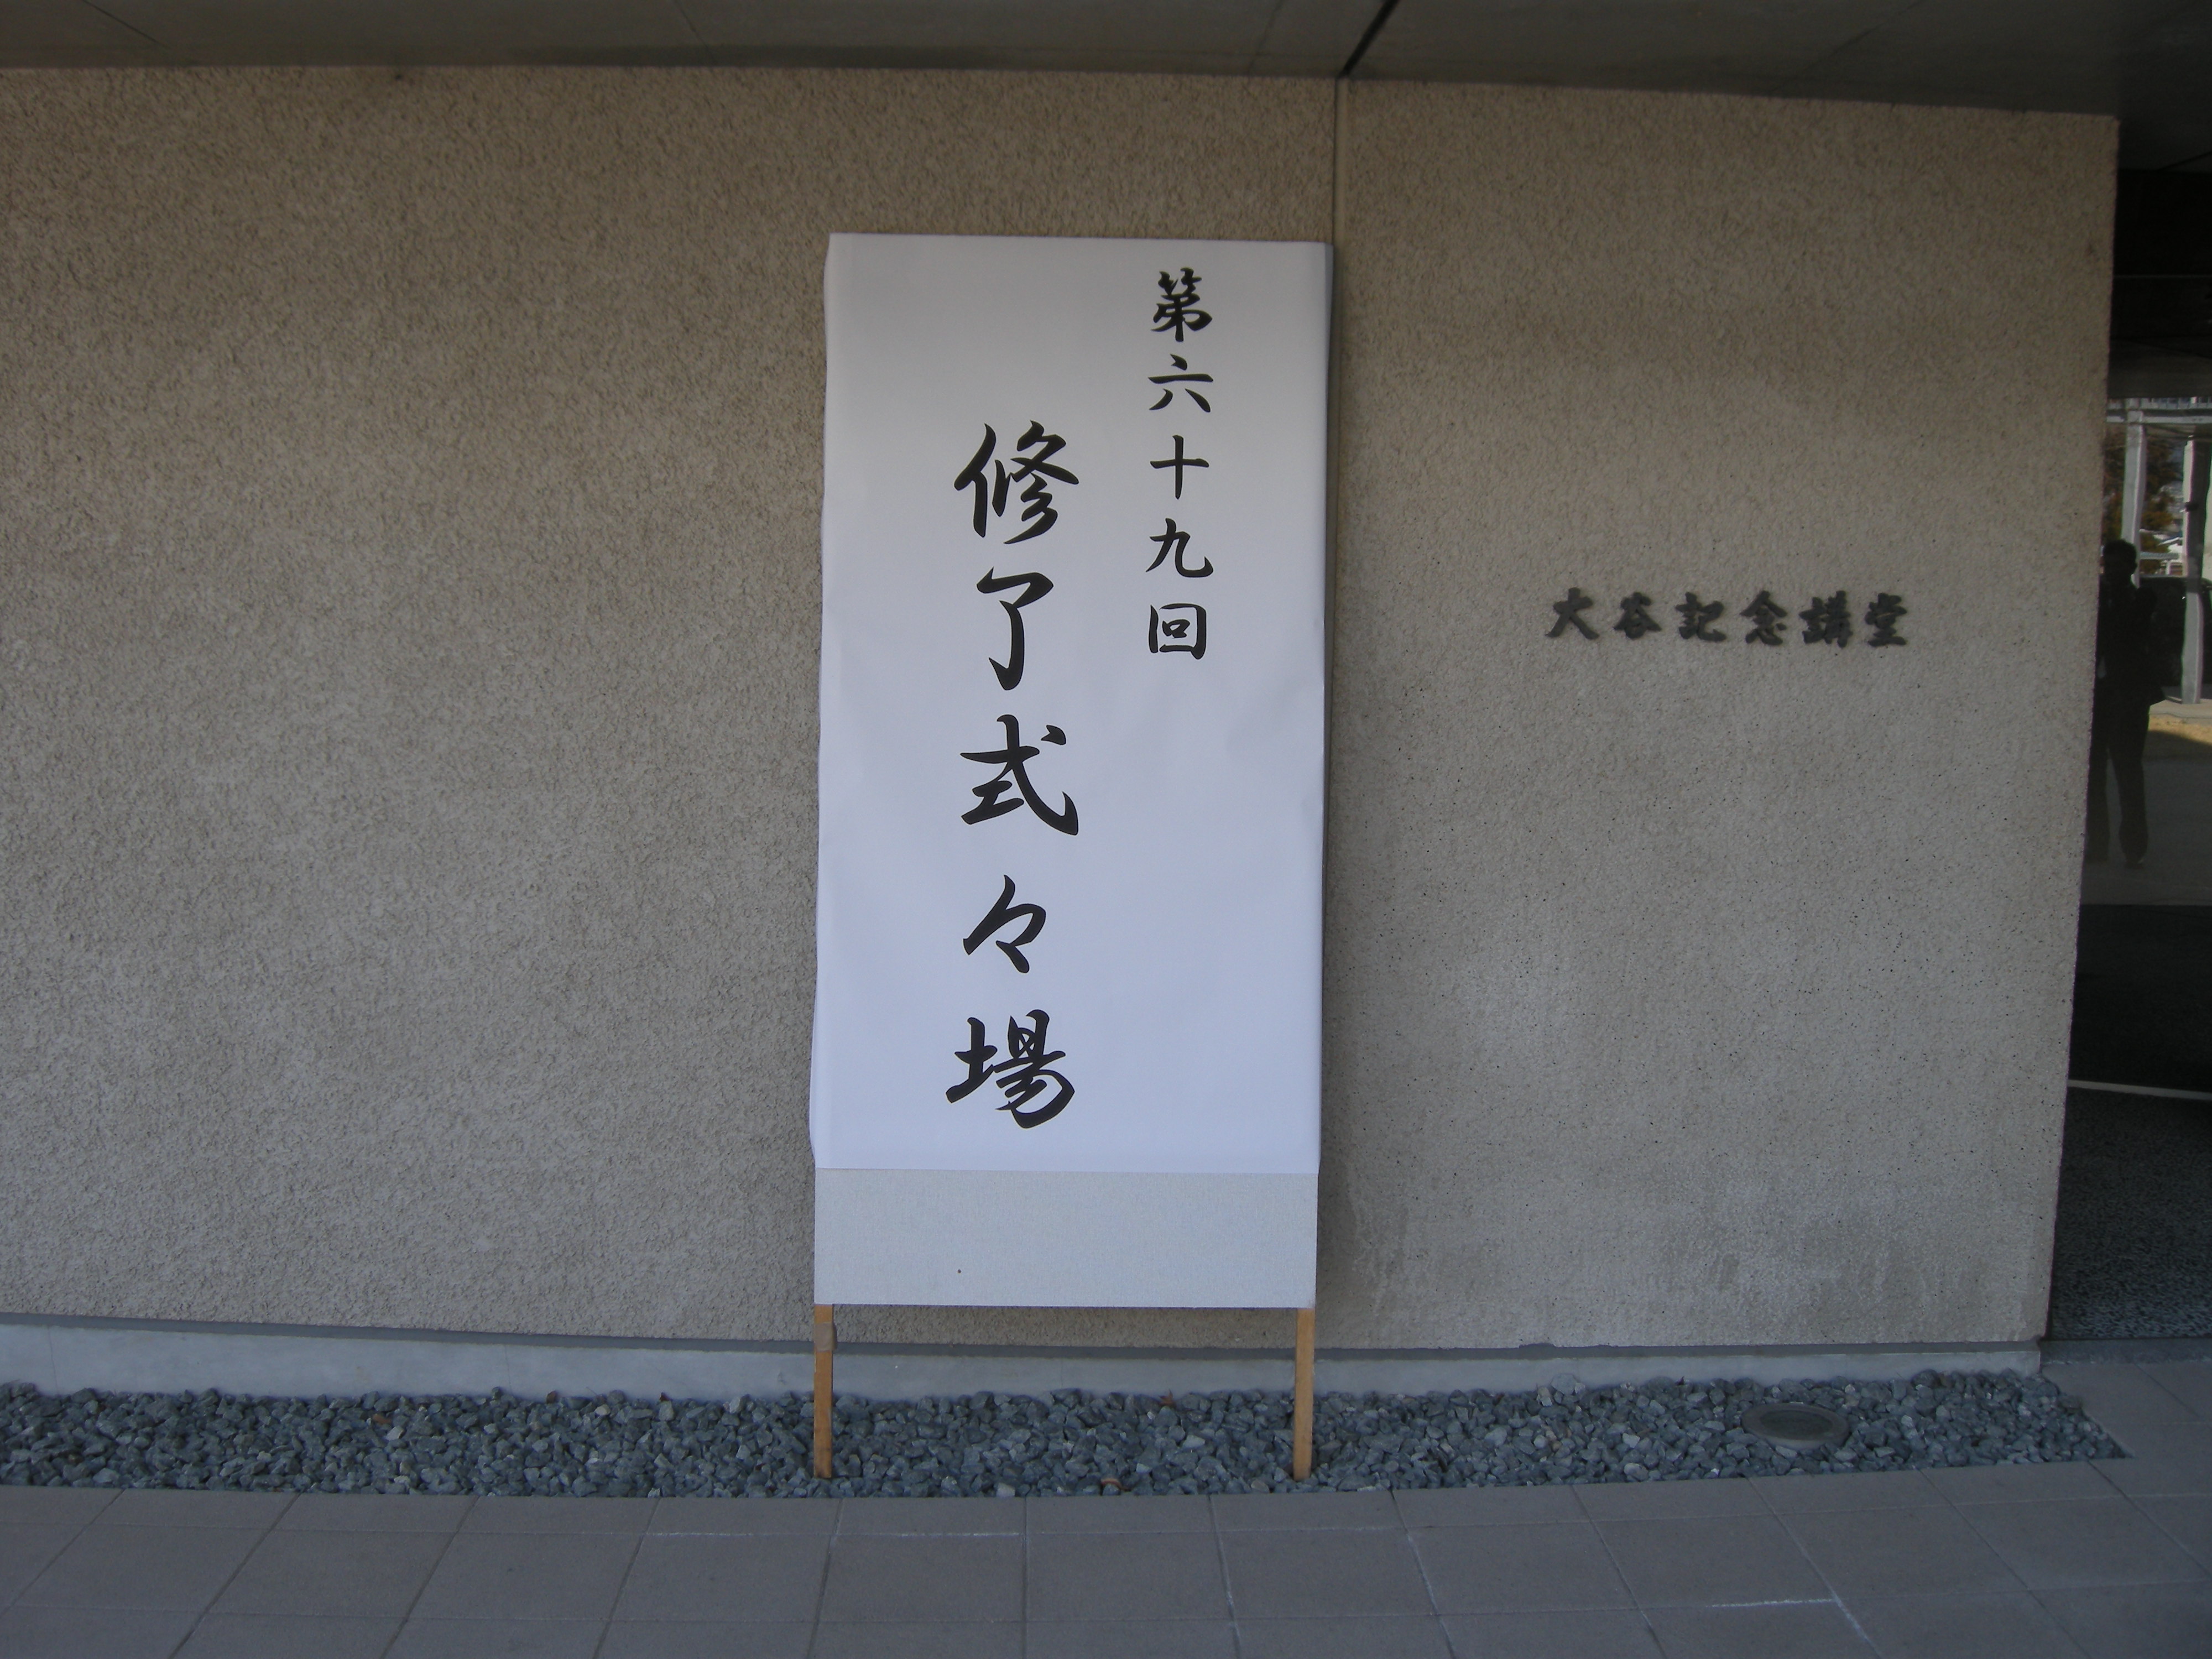 第六十九回
修了式々場
大谷記念講堂